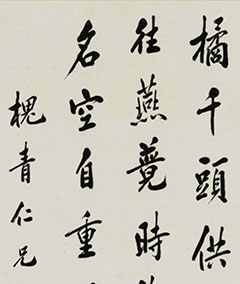 橘千頭供
往燕時
名空自重
槐青仁兄